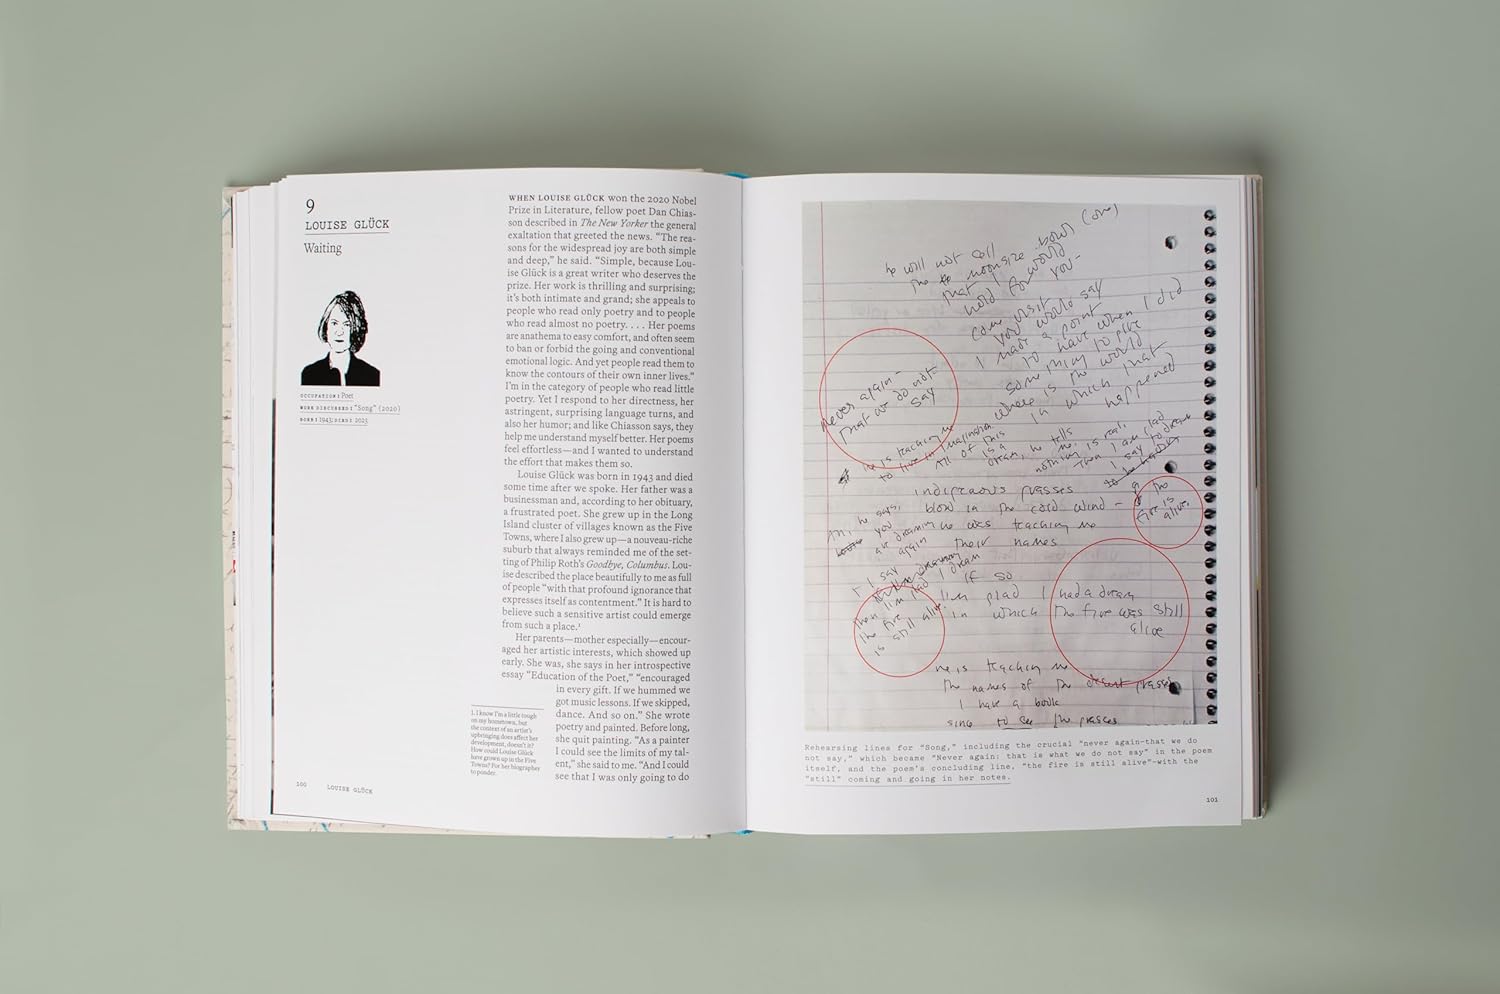 9
LOUISE GLÜCK
Waiting
OCCUPATION: Poet
WORK DISCUSSED: "Song" (2020)
BORN: 1943; DIED: 2023
WHEN LOUISE GLÜCK won the 2020 Nobel
Prize in Literature, fellow poet Dan Chias-
son described in The New Yorker the general
exaltation that greeted the news. “The rea-
sons for the widespread joy are both simple
and deep,” he said. “Simple, because Lou-
ise Glück is a great writer who deserves the
prize. Her work is thrilling and surprising;
it’s both intimate and grand; she appeals to
people who read only poetry and to people
who read almost no poetry. . . . Her poems
are anathema to easy comfort, and often seem
to ban or forbid the going and conventional
emotional logic. And yet people read them to
know the contours of their own inner lives.”
I’m in the category of people who read little
poetry. Yet I respond to her directness, her
astringent, surprising language turns, and
also her humor; and like Chiasson says, they
help me understand myself better. Her poems
feel effortless—and I wanted to understand
the effort that makes them so.
Louise Glück was born in 1943 and died
some time after we spoke. Her father was a
businessman and, according to her obituary,
a frustrated poet. She grew up in the Long
Island cluster of villages known as the Five
Towns, where I also grew up—a nouveau-riche
suburb that always reminded me of the set-
ting of Philip Roth’s Goodbye, Columbus. Lou-
ise described the place beautifully to me as full
of people “with that profound ignorance that
expresses itself as contentment.” It is hard to
believe such a sensitive artist could emerge
from such a place.¹
Her parents—mother especially—encour-
aged her artistic interests, which showed up
early. She was, she says in her introspective
essay “Education of the Poet,” “encouraged
in every gift. If we hummed we
got music lessons. If we skipped,
dance. And so on.” She wrote
poetry and painted. Before long,
she quit painting. “As a painter
I could see the limits of my tal-
ent,” she said to me. “And I could
see that I was only going to do
1. I know I’m a little tough
on my hometown, but
the context of an artist’s
upbringing does affect her
development, doesn’t it?
How could Louise Glück
have grown up in the Five
Towns? For her biographer
to ponder.
100 LOUISE GLÜCK
he will not sell
the moonsize bowl (one)
that I would
hold for you-
come visit
you would say
I made a point
to have when I did
something to give
where is the world
in which that
happened
never again -
that we do not
say
he is teaching me
to live in imagination
All of this
is a
dream, he tells
me,
nothing is real,
Then I am glad
I say to dream
indigenous grasses
blow in the cold wind -
the
fire is
alive.
he says,
you
he was teaching me
their names
again
I say
if so
I'm glad I had a dream
in which the fire was still
alive
the fire
is still alive.
he is teaching me
the names of the desert grasses
I have a book
sing to see the grasses
Rehearsing lines for "Song," including the crucial "never again—that we do
not say," which became "Never again: that is what we do not say" in the poem
itself, and the poem's concluding line, "the fire is still alive"—with the
"still" coming and going in her notes.
101